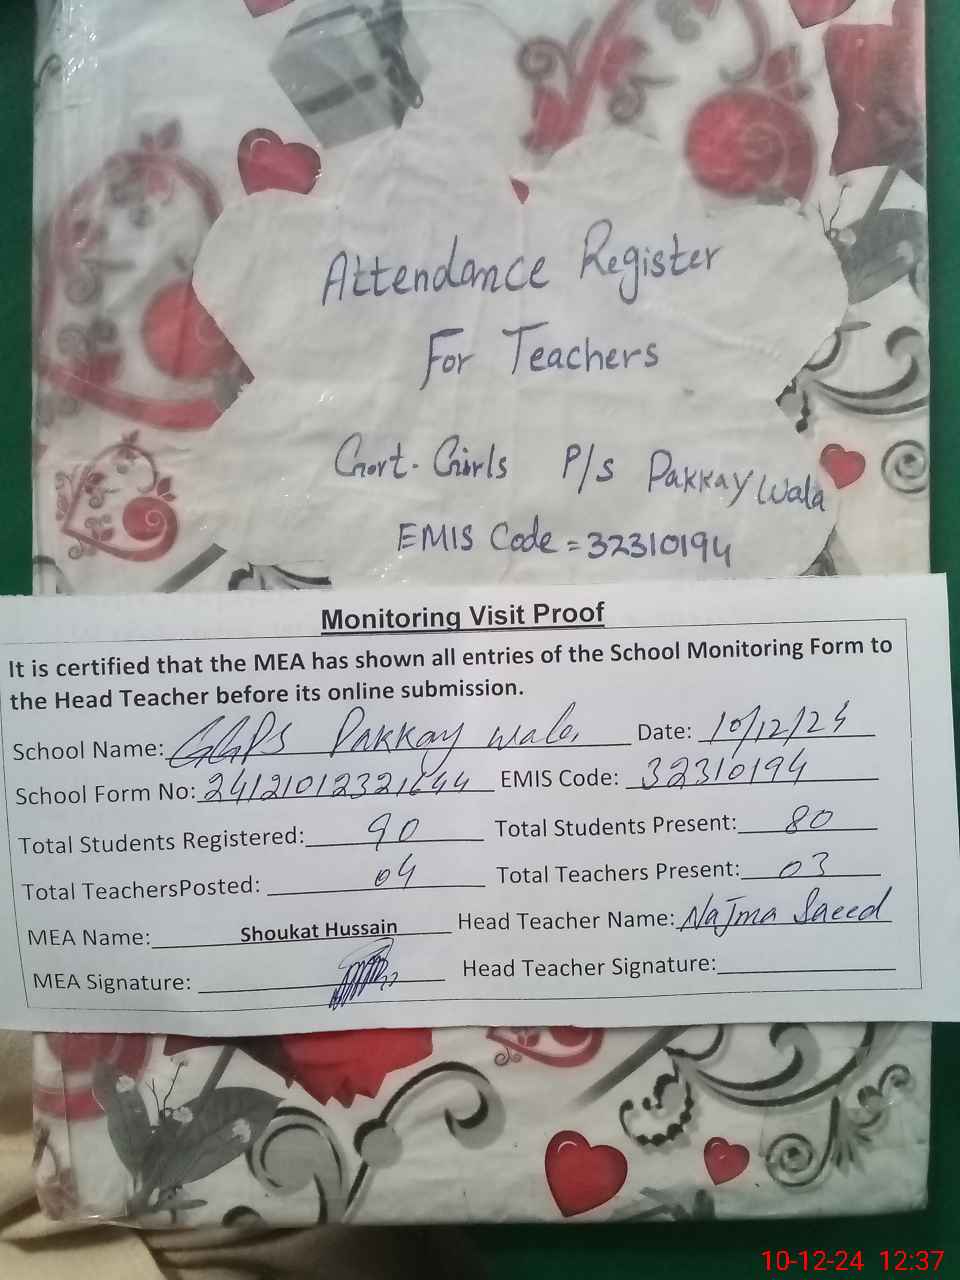 Attendance Register
For Teachers
Govt. Girls P/S Pakkay Wala
EMIS Code = 32310194
Monitoring Visit Proof
It is certified that the MEA has shown all entries of the School Monitoring Form to
the Head Teacher before its online submission.
School Name: GGPS Pakkay wala Date: 10/12/24
School Form No: EMIS Code: 32310194
Total Students Registered: 90 Total Students Present: 80
Total TeachersPosted: 04 Total Teachers Present: 03
MEA Name: Shoukat Hussain Head Teacher Name: Najma Saeed
MEA Signature: Head Teacher Signature:
10-12-24 12:37